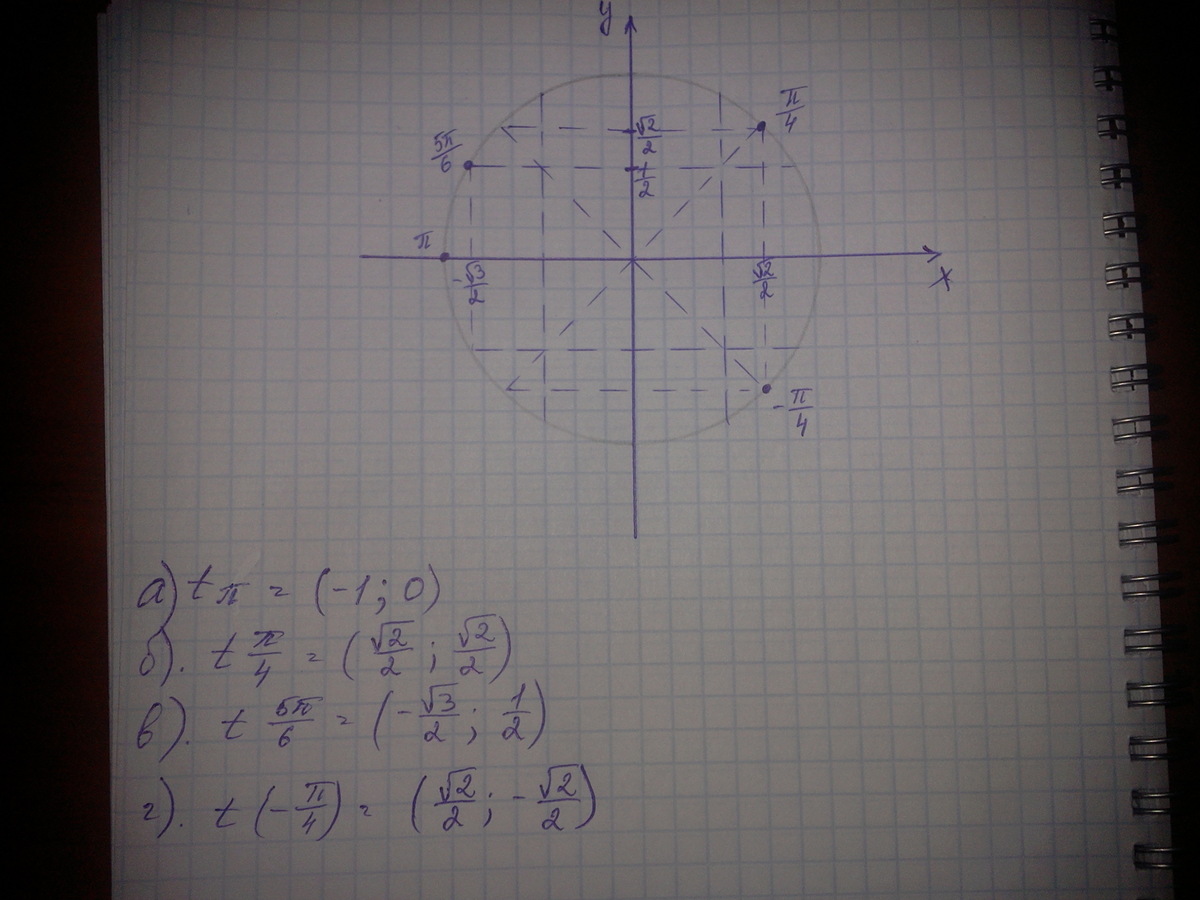 y
π/4
5π/6
√2/2
1/2
π
-√3/2
√2/2
x
-π/4
а) t π = (-1; 0)
б). t π/4 = (√2/2; √2/2)
в). t 5π/6 = (-√3/2; 1/2)
г). t (-π/4) = (√2/2; -√2/2)